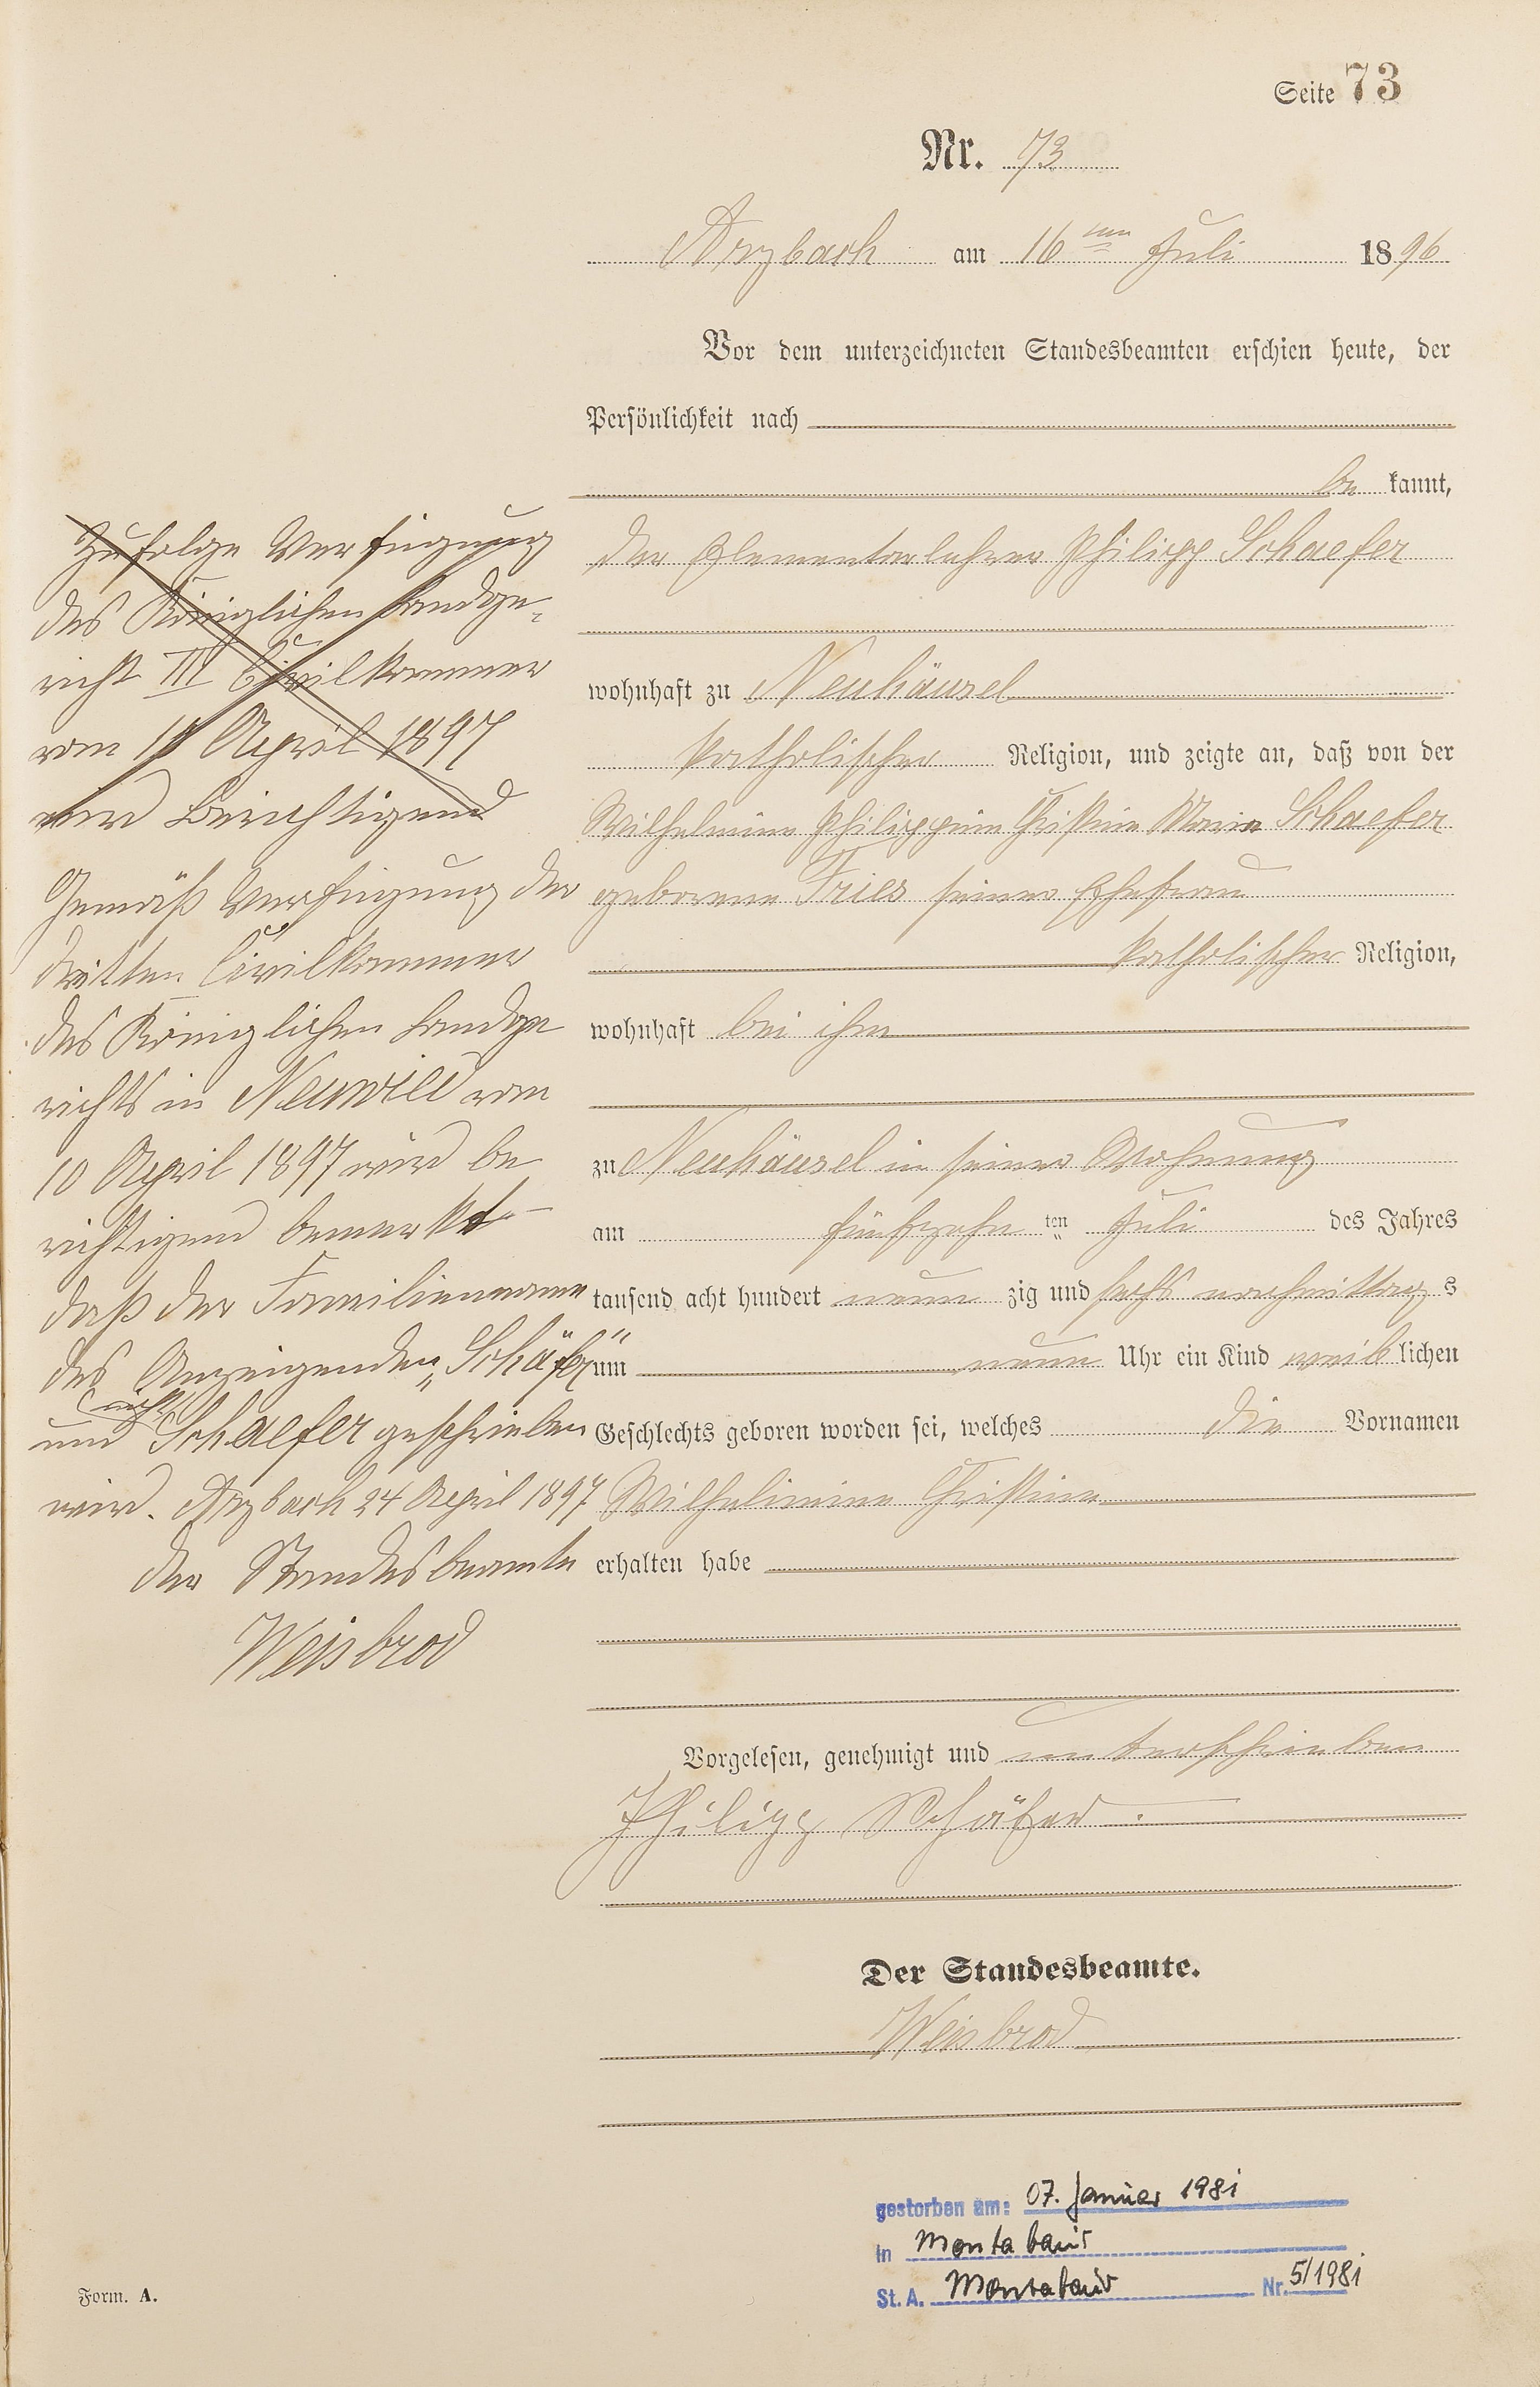 Seite 73
Nr. 73
Arzbach am 16ten Juli 1896
Vor dem unterzeichneten Standesbeamten erschien heute, der
Persönlichkeit nach
be kannt,
der Elementarlehrer Philipp Schaefer
wohnhaft zu Neuhäusel
katholischer Religion, und zeigte an, daß von der
Wilhelmine Philippine Christine Maria Schaefer
geborene Fries seiner Ehefrau
katholischer Religion,
wohnhaft bei ihm
zu Neuhäusel in seiner Wohnung
am fünfzehn ten Juli des Jahres
tausend acht hundert neun zig und sechs nachmittag s
um neun Uhr ein Kind weib lichen
Geschlechts geboren worden sei, welches die Vornamen
Wilhelmine Christine
erhalten habe
Vorgelesen, genehmigt und unterschrieben
Philipp Schäfer.
Der Standesbeamte.
Weisbrod
Zufolge Verfügung
des Königlichen Landge-
richt III Civilkammer
vom 10 April 1897
wird berichtigend
Gemäß Verfügung der
dritten Civilkammer
des Königlichen Landge
richts in Neuwied vom
10 April 1897 wird be
richtigend bemerkt
daß der Familienname
des Anzeigenden „Schäfer"
und nicht Schaefer geschrieben
wird. Arzbach 24 April 1897
Der Standesbeamte
Weisbrod
gestorben am: 07. Januar 1981
in Montabaur
St. A. Montabaur Nr. 5/1981
Form. A.